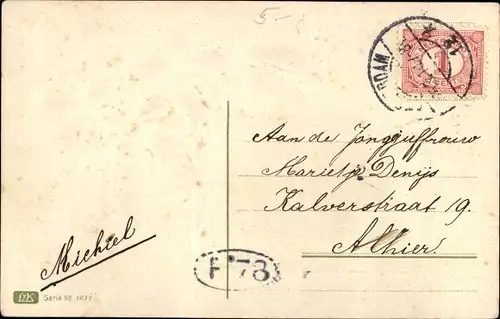 5.-
RDAM
12
1
Aan de Jongejuffrouw
Marietje Denijs
Kalverstraat 19.
Alhier.
Michiel
F 78
Serie 57 1677